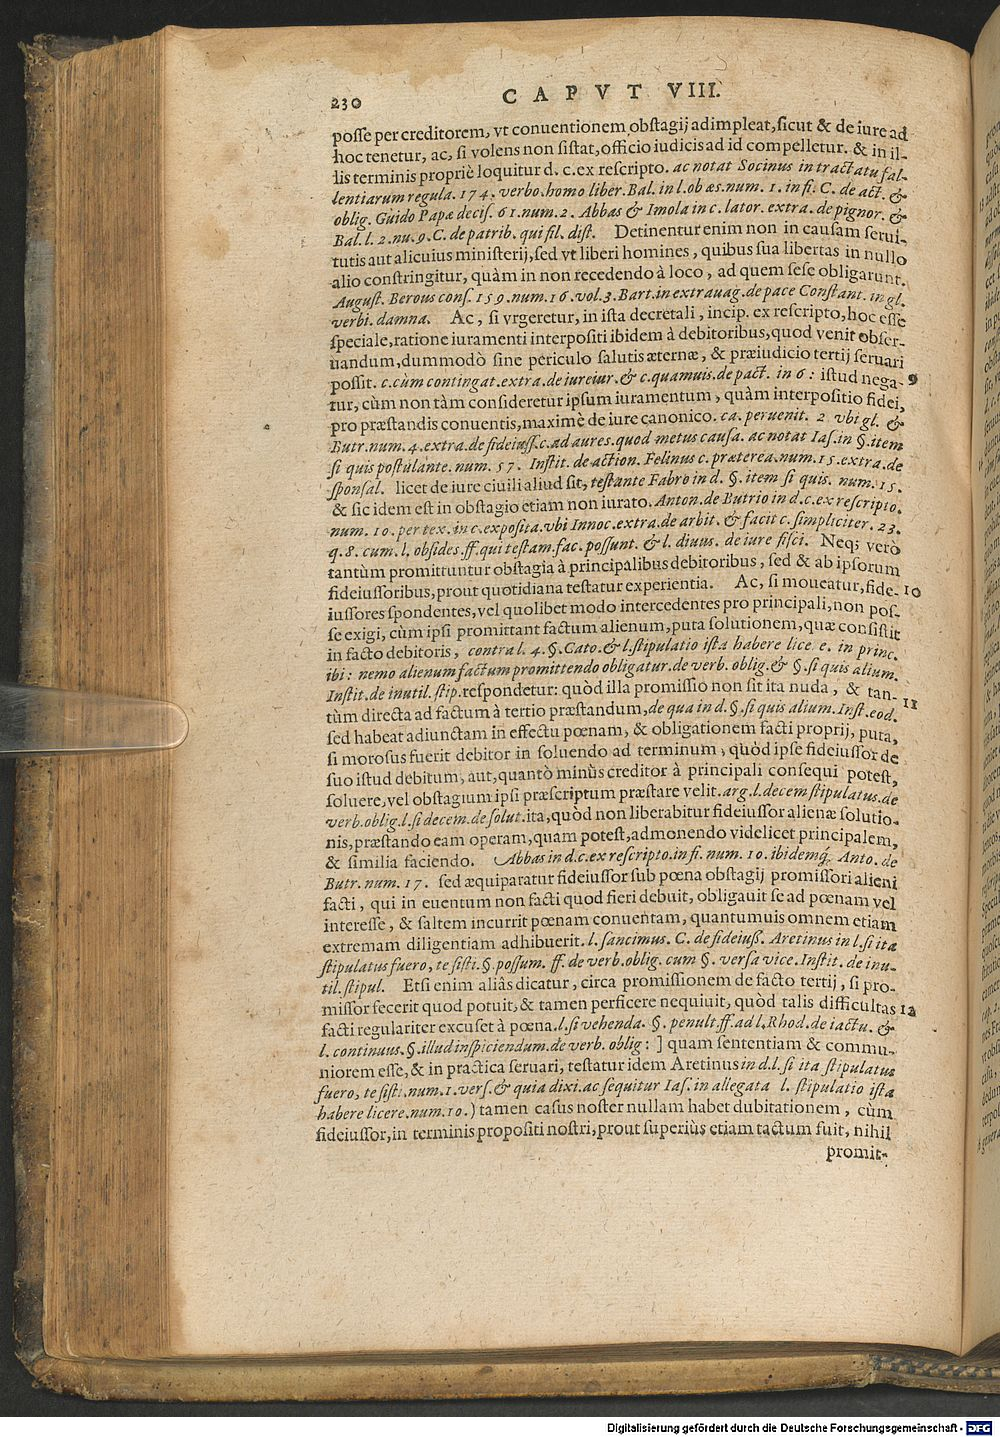 230 CAPVT VIII.
posse per creditorem, vt conuentionem obstagij adimpleat, sicut & de iure ad
hoc tenetur, ac, si volens non sistat, officio iudicis ad id compelletur. & in il-
lis terminis propriè loquitur d. c. ex rescripto. ac notat Socinus in tractatu fal-
lentiarum regula. 174. verbo. homo liber. Bal. in l. ob æs. num. 1. in fi. C. de act. &
oblig. Guido Papæ decis. 61. num. 2. Abbas & Imola in c. lator. extra. de pignor. &
Bal. l. 2. nu. 9. C. de patrib. qui fil. dist. Detinentur enim non in causam serui-
tutis aut alicuius ministerij, sed vt liberi homines, quibus sua libertas in nullo
alio constringitur, quàm in non recedendo à loco, ad quem sese obligarunt.
August. Berous cons. 159. num. 16. vol. 3. Bart. in extrauag. de pace Constant. in gl.
verbi. damna. Ac, si vrgeretur, in ista decretali, incip. ex rescripto, hoc esse
speciale, ratione iuramenti interpositi ibidem à debitoribus, quod venit obser-
uandum, dummodò sine periculo salutis æternæ, & præiudicio tertij seruari
possit. c. cùm contingat. extra. de iureiur. & c. quamuis. de pact. in 6: istud nega- 9
tur, cùm non tàm consideretur ipsum iuramentum, quàm interpositio fidei,
pro præstandis conuentis, maximè de iure canonico. ca. peruenit. 2 vbi gl. &
Butr. num. 4. extra. de fideiuss. c. ad aures. quod metus causa. ac notat Ias. in §. item
si quis postulante. num. 57. Instit. de action. Felinus c. præterea. num. 15. extra. de
sponsal. licet de iure ciuili aliud sit, testante Fabro in d. §. item si quis. num. 15.
& sic idem est in obstagio etiam non iurato. Anton. de Butrio in d. c. ex rescripto.
num. 10. per tex. in c. exposita. vbi Innoc. extra. de arbit. & facit c. simpliciter. 23.
q. 8. cum. l. obsides. ff. qui testam. fac. possunt. & l. diuus. de iure fisci. Neq; verò
tantùm promittuntur obstagia à principalibus debitoribus, sed & ab ipsorum
fideiussoribus, prout quotidiana testatur experientia. Ac, si moueatur, fide- 10
iussores spondentes, vel quolibet modo intercedentes pro principali, non pos-
se exigi, cùm ipsi promittant factum alienum, puta solutionem, quæ consistit
in facto debitoris, contra l. 4. §. Cato. & l. stipulatio ista habere lice e. in princ.
ibi: nemo alienum factum promittendo obligatur. de verb. oblig. & §. si quis alium.
Instit. de inutil. stip. respondetur: quòd illa promissio non sit ita nuda, & tan-
tùm directa ad factum à tertio præstandum, de qua in d. §. si quis alium. Inst. eod. 11
sed habeat adiunctam in effectu pœnam, & obligationem facti proprij, puta,
si morosus fuerit debitor in soluendo ad terminum, quòd ipse fideiussor de
suo istud debitum, aut, quantò minùs creditor à principali consequi potest,
soluere, vel obstagium ipsi præscriptum præstare velit. arg. l. decem stipulatus. de
verb. oblig. l. si decem. de solut. ita, quòd non liberabitur fideiussor alienæ solutio-
nis, præstando eam operam, quam potest, admonendo videlicet principalem,
& similia faciendo. Abbas in d. c. ex rescripto. in fi. num. 10. ibidemq́; Anto. de
Butr. num. 17. sed æquiparatur fideiussor sub pœna obstagij promissori alieni
facti, qui in euentum non facti quod fieri debuit, obligauit se ad pœnam vel
interesse, & saltem incurrit pœnam conuentam, quantumuis omnem etiam
extremam diligentiam adhibuerit. l. sancimus. C. de fideiuß. Aretinus in l. si ita
stipulatus fuero, te sisti. §. possum. ff. de verb. oblig. cum §. versa vice. Instit. de inu-
til. stipul. Etsi enim aliâs dicatur, circa promissionem de facto tertij, si pro-
missor fecerit quod potuit, & tamen perficere nequiuit, quòd talis difficultas 12
facti regulariter excuset à pœna. l. si vehenda. §. penult ff. ad l. Rhod. de iactu. &
l. continuus. §. illud inspiciendum. de verb. oblig: ] quam sententiam & commu-
niorem esse, & in practica seruari, testatur idem Aretinus in d. l. si ita stipulatus
fuero, te sisti. num. 1. vers. & quia dixi. ac sequitur Ias. in allegata l. stipulatio ista
habere licere. num. 10.) tamen casus noster nullam habet dubitationem, cùm
fideiussor, in terminis propositi nostri, prout superiùs etiam tactum fuit, nihil
promit-
Digitalisierung gefördert durch die Deutsche Forschungsgemeinschaft - DFG